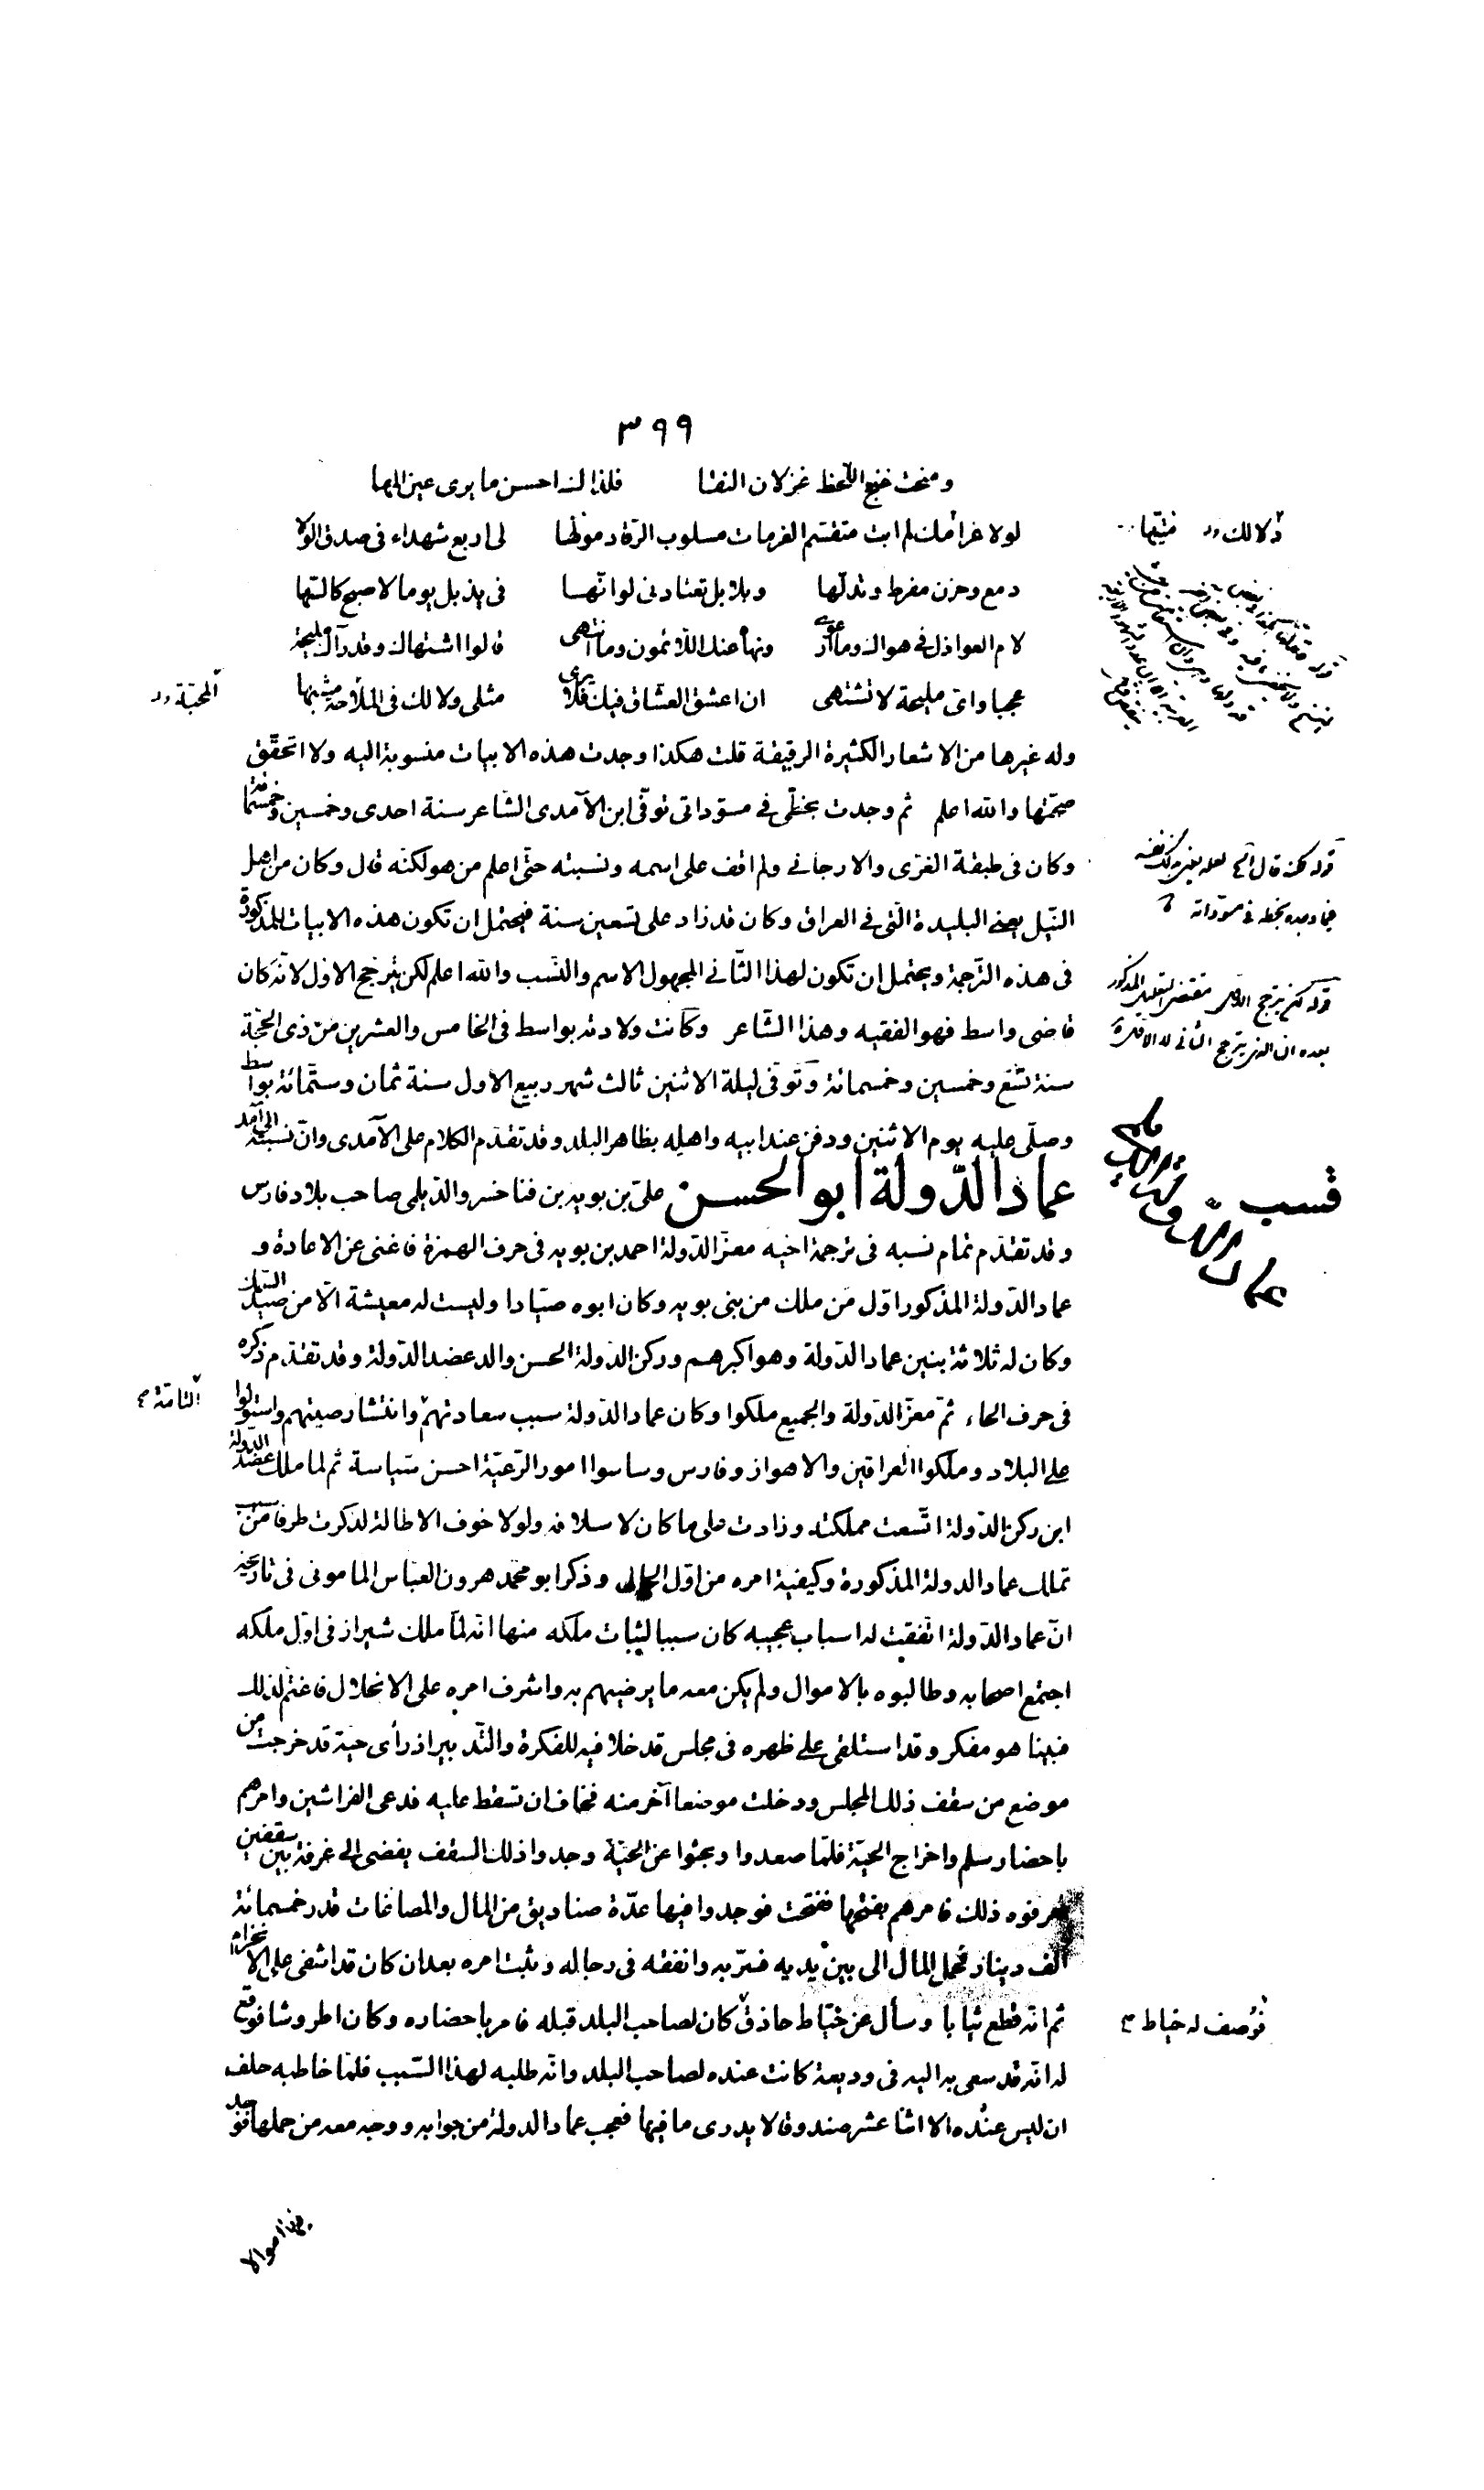 ٣٩٩
ومنحت غنج اللّحظ غزلان النقا فلذالك احسن ما يرى عين المها
لولا غرامك لم ابت متقسّم الغرمات مسلوب الرّقاد مولّها لى اربع شهداء فى صدق الولا
دمع وحزن مفرط وتدلّها وبلابل تعتادنى لو انّها فى يذبل يوما لاصبح كالسّها
لام العواذل فى هواك وما ارعوى ونهاعنك اللائمون وما انتهى قالوا اشتهاك وقد رآك مليحة
عجبا واى مليحة لا تشتهى ان اعشق العشّاق فيك فلا يرى مثلى ولا لك فى الملاحة مشبها
وله غيرها من الاشعار الكثيرة الرقيقة قلت هكذا وجدت هذه الابيات منسوبة اليه ولا اتحقّق
صحّتها والله اعلم ثم وجدت بخطّى فى مسوّداتى توفّى ابن الآمدى الشّاعر سنة احدى وخمسين وخمسمائة
وكان فى طبقة الغزى والارجانى ولم اقف على اسمه ونسبته حتّى اعلم من هو لكنّه قال وكان من اهل
النّيل يعنى البليدة الّتى فى العراق وكان قد زاد على تسعين سنة فيحتمل ان تكون هذه الابيات للمذكورة
فى هذه التّرجمة ويحتمل ان تكون لهذا الثّانى المجهول الاسم والنّسب والله اعلم لكن يترجّح الاول لانّه كان
قاضى واسط فهو الفقيه وهذا الشّاعر وكانت ولادته بواسط فى الخامس والعشرين من ذى الحجّة
سنة تسع وخمسين وخمسمائة وتوفّى ليلة الاثنين ثالث شهر ربيع الاول سنة ثمان وستّمائة بواسط
وصلّى عليه يوم الاثنين ودفن عند ابيه واهله بظاهر البلد وقد تقدّم الكلام على الآمدى وانّ نسبته الى آمد
عماد الدّولة ابو الحسن علىّ بن بويه بن فناخسرو الدّيلمى صاحب بلاد فارس
وقد تقدّم تمام نسبه فى ترجمة اخيه معزّ الدّولة احمد بن بويه فى حرف الهمزة فاغنى عن الاعادة و
عماد الدّولة المذكور اوّل من ملك من بنى بويه وكان ابوه صيّادا وليست له معيشة الّا من صيد السّمك
وكان له ثلاثة بنين عماد الدّولة وهو اكبرهم وركن الدّولة الحسن والد عضد الدّولة وقد تقدّم ذكره
فى حرف الحاء ثمّ معزّ الدّولة والجميع ملكوا وكان عماد الدّولة سبب سعادتهم وانتشار صيتهم واستولوا
على البلاد وملكوا العراقين والاهواز وفارس وساسوا امور الرّعيّة احسن سياسة ثم لما ملك عضد الدّولة
ابن ركن الدّولة اتّسعت مملكته وزادت على ما كان لاسلافه ولولا خوف الاطالة لذكرت طرفا من سبب
تملك عماد الدولة المذكورة وكيفية امره من اوّل الحال وذكر ابو محمد هرون العبّاس المامونى فى تاريخه
انّ عماد الدّولة اتّفقت له اسباب عجيبه كان سببا لثبات ملكه منها انّه لمّا ملك شيراز فى اوّل ملكه
اجتمع اصحابه وطالبوه بالاموال ولم يكن معه ما يرضيهم به واشرف امره على الانحلال فاغتم لذلك
فبينا هو مفكر وقد استلقى على ظهره فى مجلس قد خلا فيه للفكرة والتّدبير اذ رأى حيّة قد خرجت من
موضع من سقف ذلك المجلس ودخلت موضعا آخر منه فخاف ان تسقط عليه فدعى الفرّاشين وامرهم
باحضار سلم واخراج الحيّة فلمّا صعدوا وبحثوا عن الحيّة وجدوا ذلك السّقف يفضى الى غرفة بين سقفين
فعرفوه ذلك فامرهم بفتحها ففتحت فوجدوا فيها عدّة صناديق من المال والمصاغات قدر خمسمائة
الف دينار فحمل المال الى بين يديه فسرّ به وانفقه فى رجاله وثبت امره بعد ان كان قد اشفى على الانخرام
ثم انّه قطع ثيابا وسأل عن خيّاط حاذق كان لصاحب البلد قبله فامر باحضاره وكان اطروشا فوقع
له انّه قد سعى به اليه فى وديعة كانت عنده لصاحب البلد وانّه طلبه لهذا السّبب فلمّا خاطبه حلف
ان ليس عنده الا اثنا عشر صندوقا لا يدرى ما فيها فعجب عماد الدولة من جوابه ووجه معه من حملها فوجد
فيها اموالا
ذلالك
المحبّة
قوله لكنه قال الخ
فيما وجده بخطه فى مسوّداته
قوله لكن يترجح الاول مقتضى التعليل المذكور
بعده ان يترجح الثانى لا الاول
قسب
عماد الدّولة
التامّة
فوصف له خياط